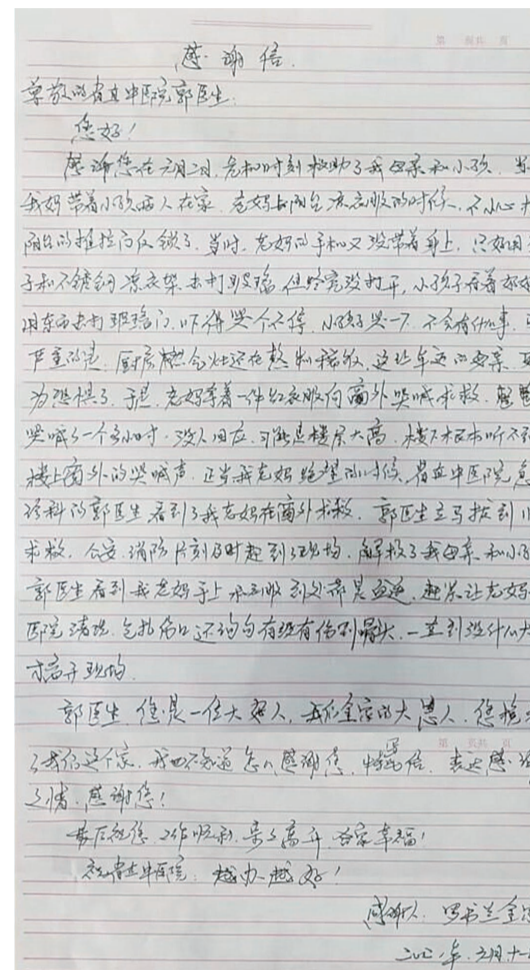 感谢信.
尊敬的省直中医院郭医生:
您好!
感谢您在元月二日,危机时刻救助了我母亲和小孩.
我妈带着小孩两人在家.老妈上阳台凉衣服的时候,不小心
阳台的推拉门反锁了.当时,老妈的手机又没带着身上.只好用
子和不锈钢凉衣架去打玻璃,但终究没打开,小孩子看着奶奶
用东西去打玻璃门,吓得哭个不停,小孩子哭一下,不会有什么事,
严重的是,厨房燃气灶还在熬制稀饭,这让年迈的母亲,
为恐惧了.于是,老妈拿着一件红衣服向窗外哭喊求救.整整
哭喊了一个多小时.没人回应.可能是楼层太高,楼下根本听不到
楼上窗外的哭喊声.正当我老妈绝望的时候,省直中医院急
诊科的郭医生看到了我老妈在窗外求救.郭医生立马拨到11
求救.公安、消防片刻及时赶到了现场.解救了我母亲和小孩
郭医生看到我老妈手上衣服到处都是血迹,赶紧让老妈
医院清洗、包扎伤口还询问有没有伤到骨头.一直到没什么大
才离开现场.
郭医生,您是一位大好人,我们全家的大恩人,您挽
了我们这个家,我也不知道怎么感谢您,特写信.表达感
之情.感谢您!
最后祝您工作顺利.步步高升.合家幸福!
祝省直中医院:越办越好!
感谢人:罗书兰全
二〇二一年.元月十一